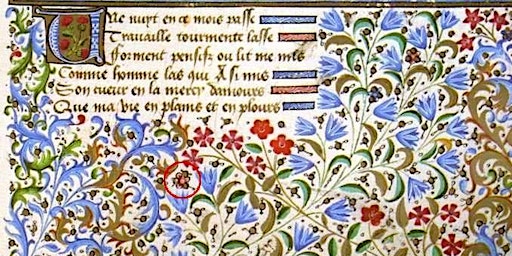 Une nuyt en ce mois passe
Travaille tourmente lasse
Forment pensif ou lit me mis
Comme homme las qui a si mis
Son cueur en la mercy damours
Que ma vie en plains et en plours